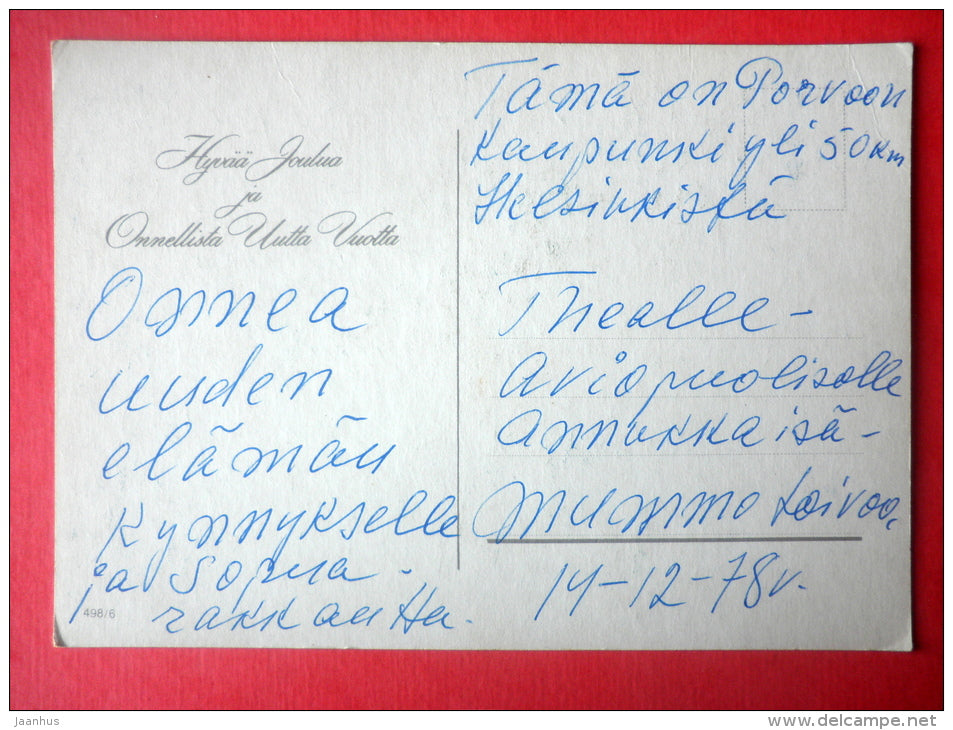 Hyvää Joulua
ja
Onnellista Uutta Vuotta
Onnea
uuden
elämän
kynnykselle
ja sopua -
rakkautta.
498/6
Tämä on Porvoon
kaupunki yli 50 km
Helsinkistä
Thealle -
Aviopuolisolle
Annukka isä -
mummo toivoo,
14-12-78 v.
Jaanhus
www.delcampe.net